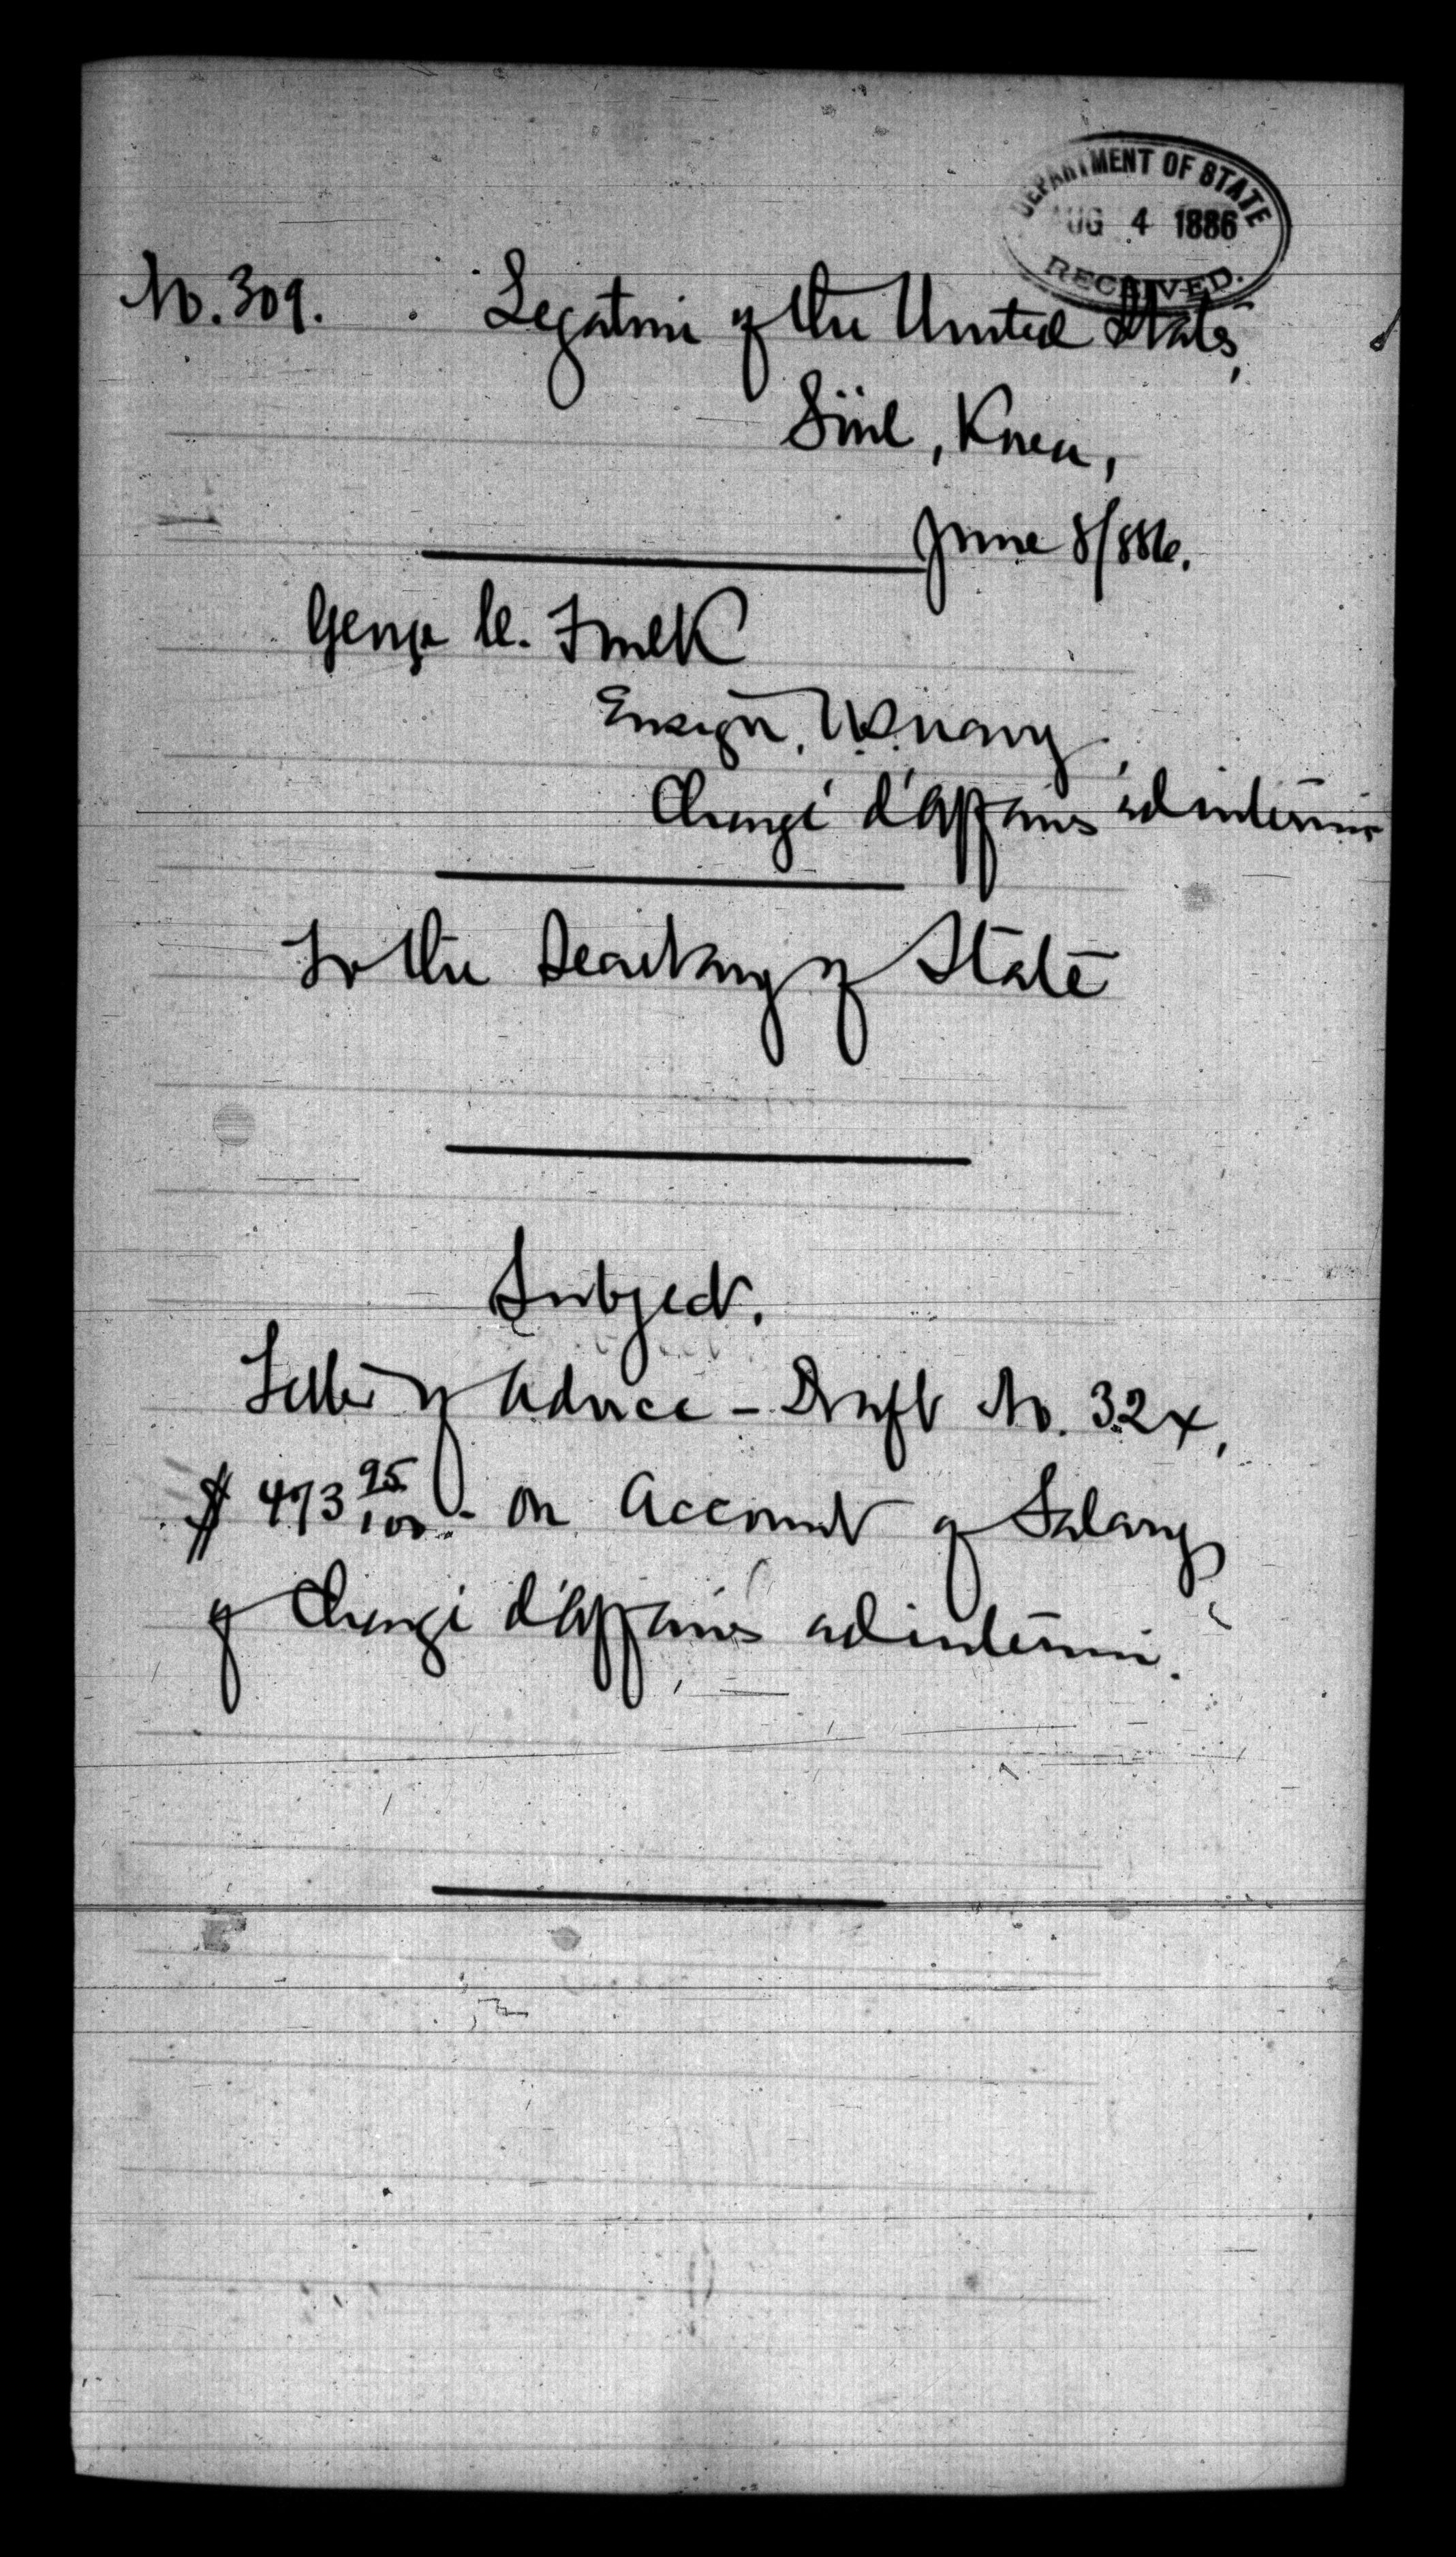 DEPARTMENT OF STATE
AUG 4 1886
RECEIVED.
No. 309. Legation of the United States,
Söul, Korea,
June 8/886.
George C. Foulk
Ensign, U.S. Navy,
Chargé d'Affaires ad interim
To the Secretary of State
Subject.
Letter of Advice – Draft No. 324,
$ 473 95/100 - on Account of Salary
of Chargé d'Affaires ad interim.